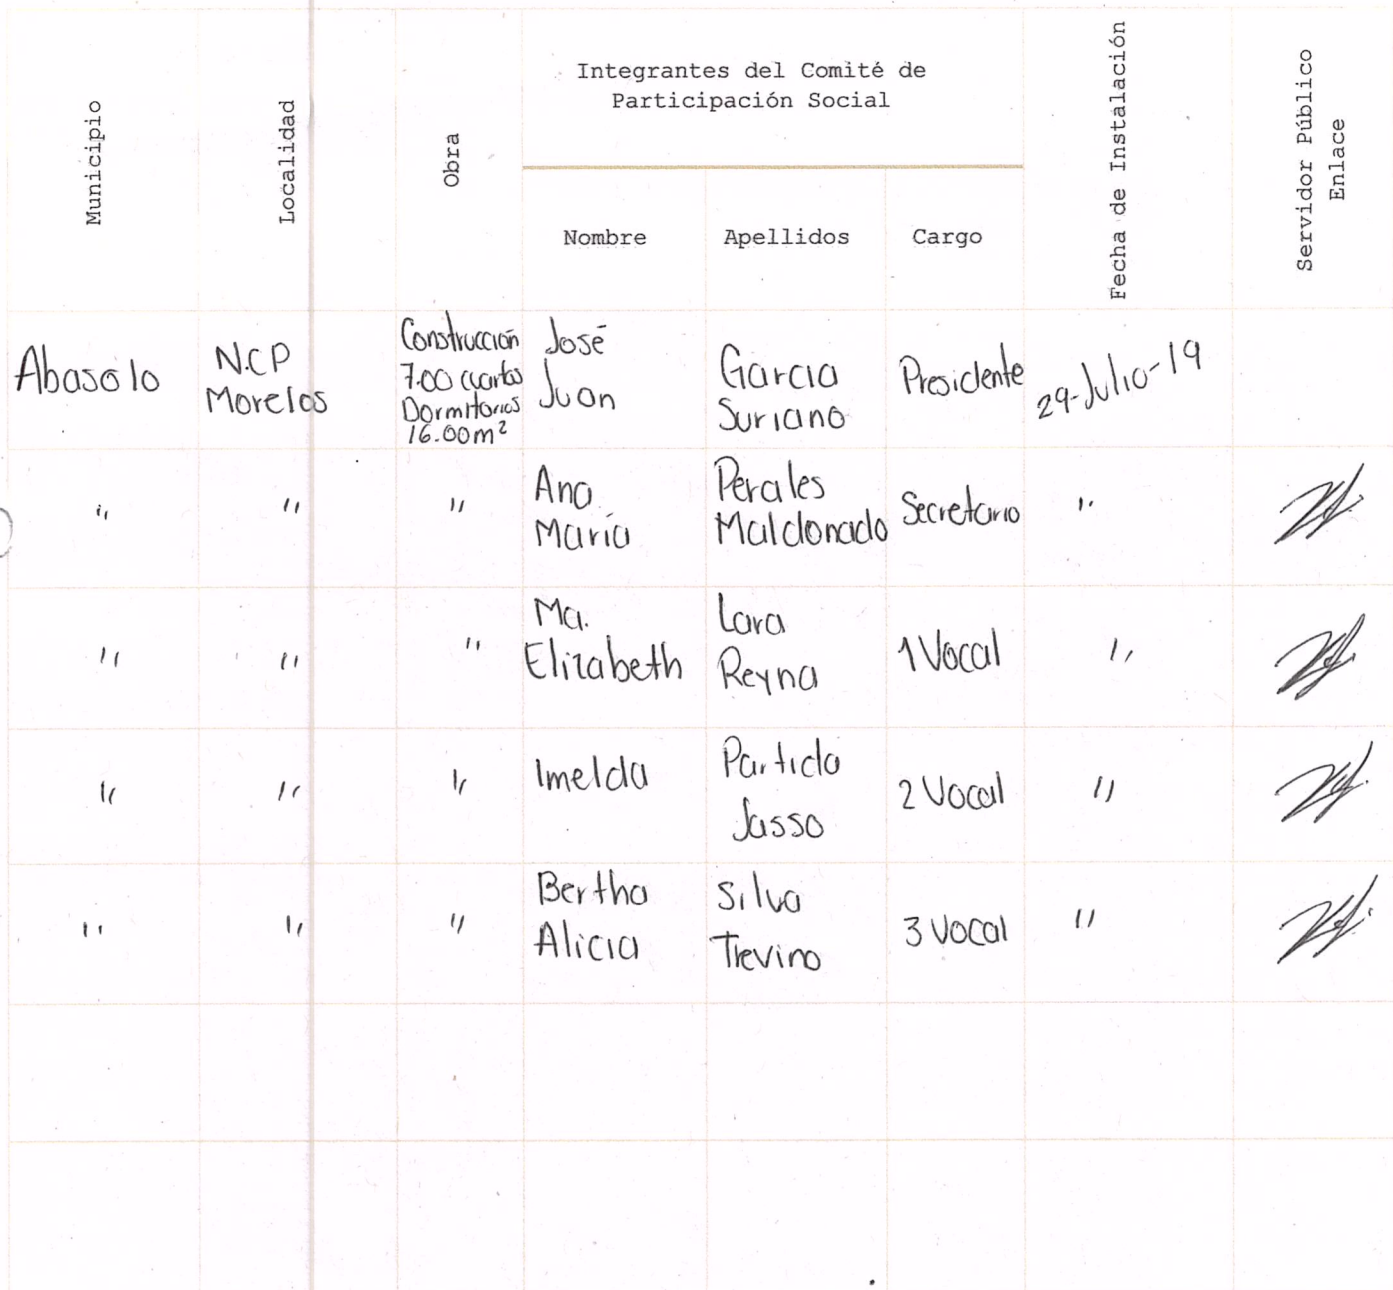 Municipio
Localidad
Obra
Integrantes del Comité de
Participación Social
Nombre
Apellidos
Cargo
Fecha de Instalación
Servidor Público
Enlace
Abasolo
N.C.P
Morelos
Construcción
7.00 cuartos
Dormitorios
16.00 m²
José
Juan
Garcia
Suriano
Presidente
29-Julio-19
"
"
"
Ana
María
Perales
Maldonado
Secretario
"
"
"
"
Ma.
Elizabeth
Lara
Reyna
1 Vocal
"
"
"
"
Imelda
Partida
Jasso
2 Vocal
"
"
"
"
Bertha
Alicia
Silva
Trevino
3 Vocal
"